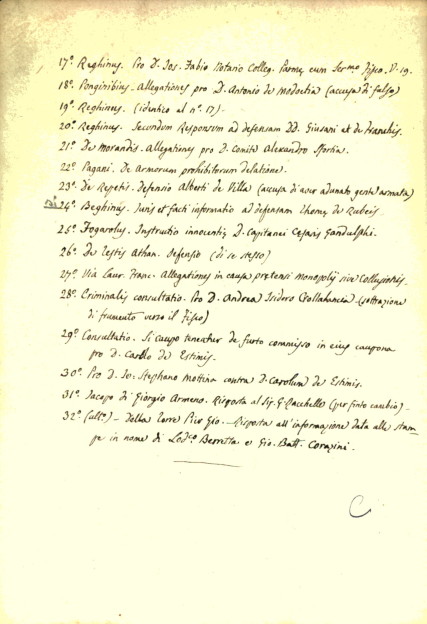 17º. Reghinus. Pro D. Jos. Fabio Notario Colleg. Parmæ cum Sermo Fisco. V. 19.
18º. Ponginibius - Allegationes pro D. Antonio de Modoetia (accusa di falso)
19º. Reghinus. (identico al nº. 17). -
20º. Reghinus. Secundum Responsum ad defensam DD. Giusani et de Franchis.
21º. De Morandis. Allegationes pro D. Comite Alexandro Sfortia.
22º. Pagani. De Armorum prohibitorum delatione.
23º. De Repetis. Defensio Alberti de Villa (accusa di aver adunato gente armata)
24º. Beghinus. Juris et facti informatio ad defensam Thomę de Rubeis.
25º. Fogarolus. Instructio innocentię D. Capitanei Cesaris Gandulphi.
26º. De Testis Athan. Defensio (di se stesso)
27º. Via Laur. Franc. Allegationes in causa pretensi Monopolij sive Collusionis.
28º. Criminalis consultatio. Pro D. Andrea Isidoro (sottrazione
di frumento verso il Fisco)
29º. Consultatio. Si caupo teneatur de furto commisso in eius caupona
pro D. Carolo de Estimis.
30º. Pro D. Jo: Stephano Mottina contra D. Carolum de Estimis.
31º. Jacopo di Giorgio Armeno. Risposta al Sig. G. Pacchelle (per finto cambio) -
32º. (ult.º) - Dalla Torre Pier Gio. - Risposta all'informazione data alle stam=
pe in nome di Lod.co Berretta e Gio. Batt. Corazini.
C